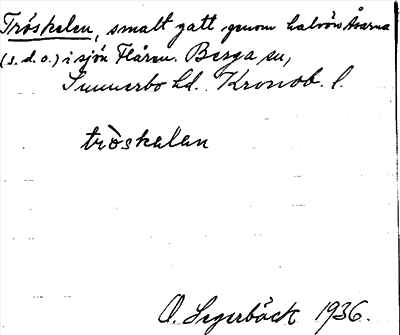 Tröskelen, smalt gatt genom halvön Åsarna
(s. d. o.) i sjön Flåren. Berga sn,
Sunnerbo hd. Kronob. l.
tròskelen
O. Segerbäck 1936.